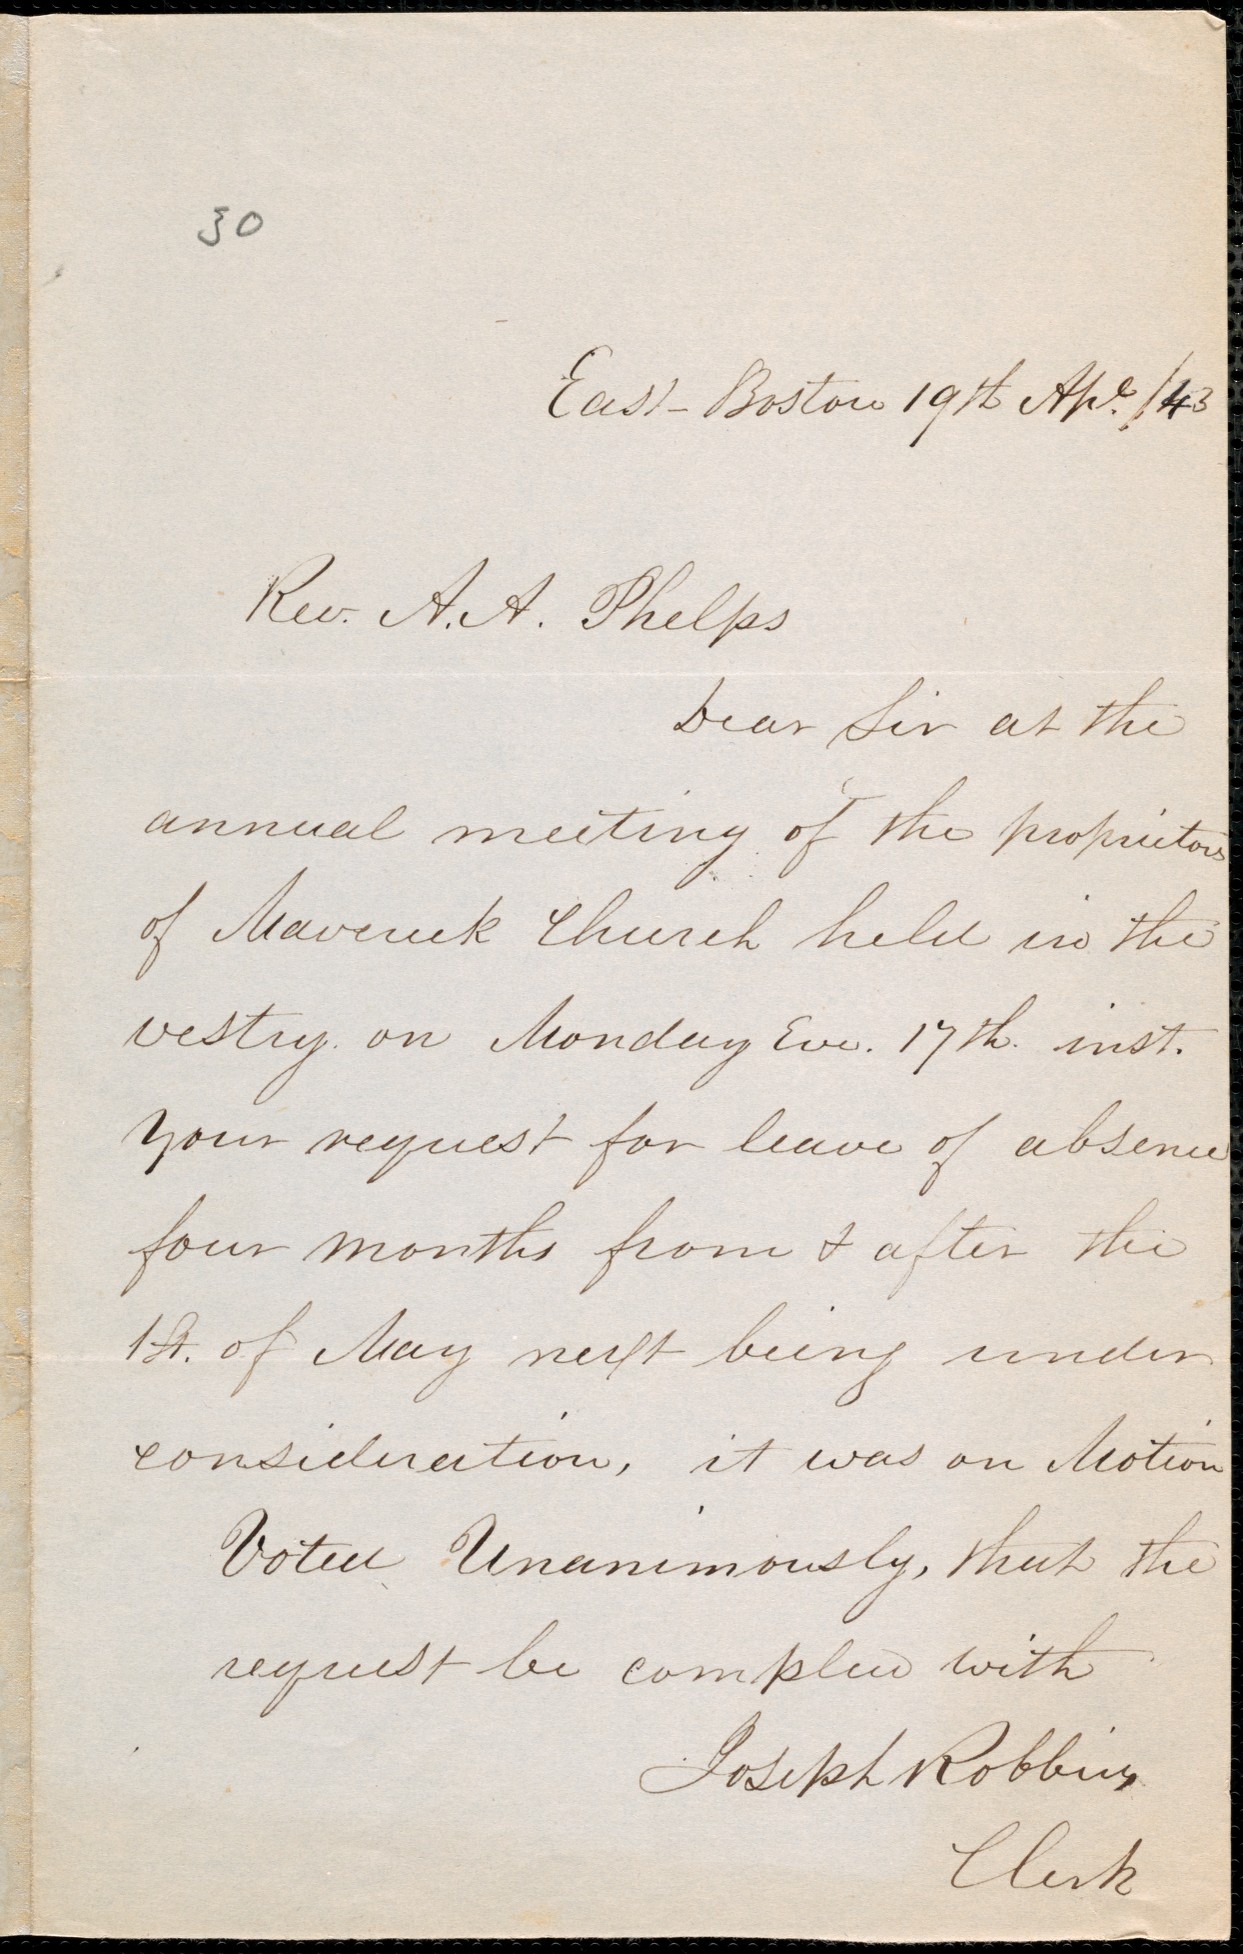 30
East-Boston 19th Apl. /43
Rev. A. A. Phelps
Dear Sir at the
annual meeting of the proprietors
of Maverick Church held in the
vestry on Monday Eve. 17th. inst.
your request for leave of absence
four months from & after the
1st. of May next being under
consideration, it was on Motion
Voted Unanimously, that the
request be complied with
Joseph Robbins
Clerk